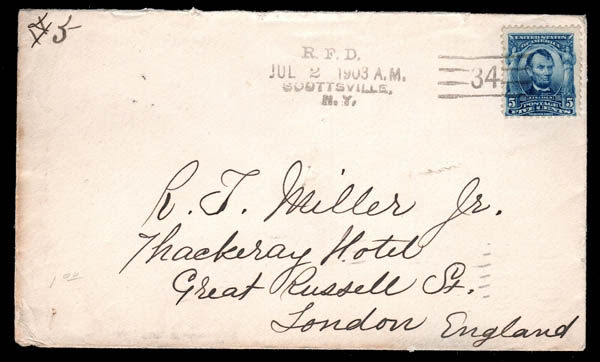 5
R. F. D.
JUL 2 1903 A.M.
SCOTTSVILLE,
N. Y.
34
UNITED STATES
OF AMERICA
5 5
POSTAGE
FIVE CENTS
R. T. Miller Jr.
Thackeray Hotel
Great Russell St.
London England
1.00